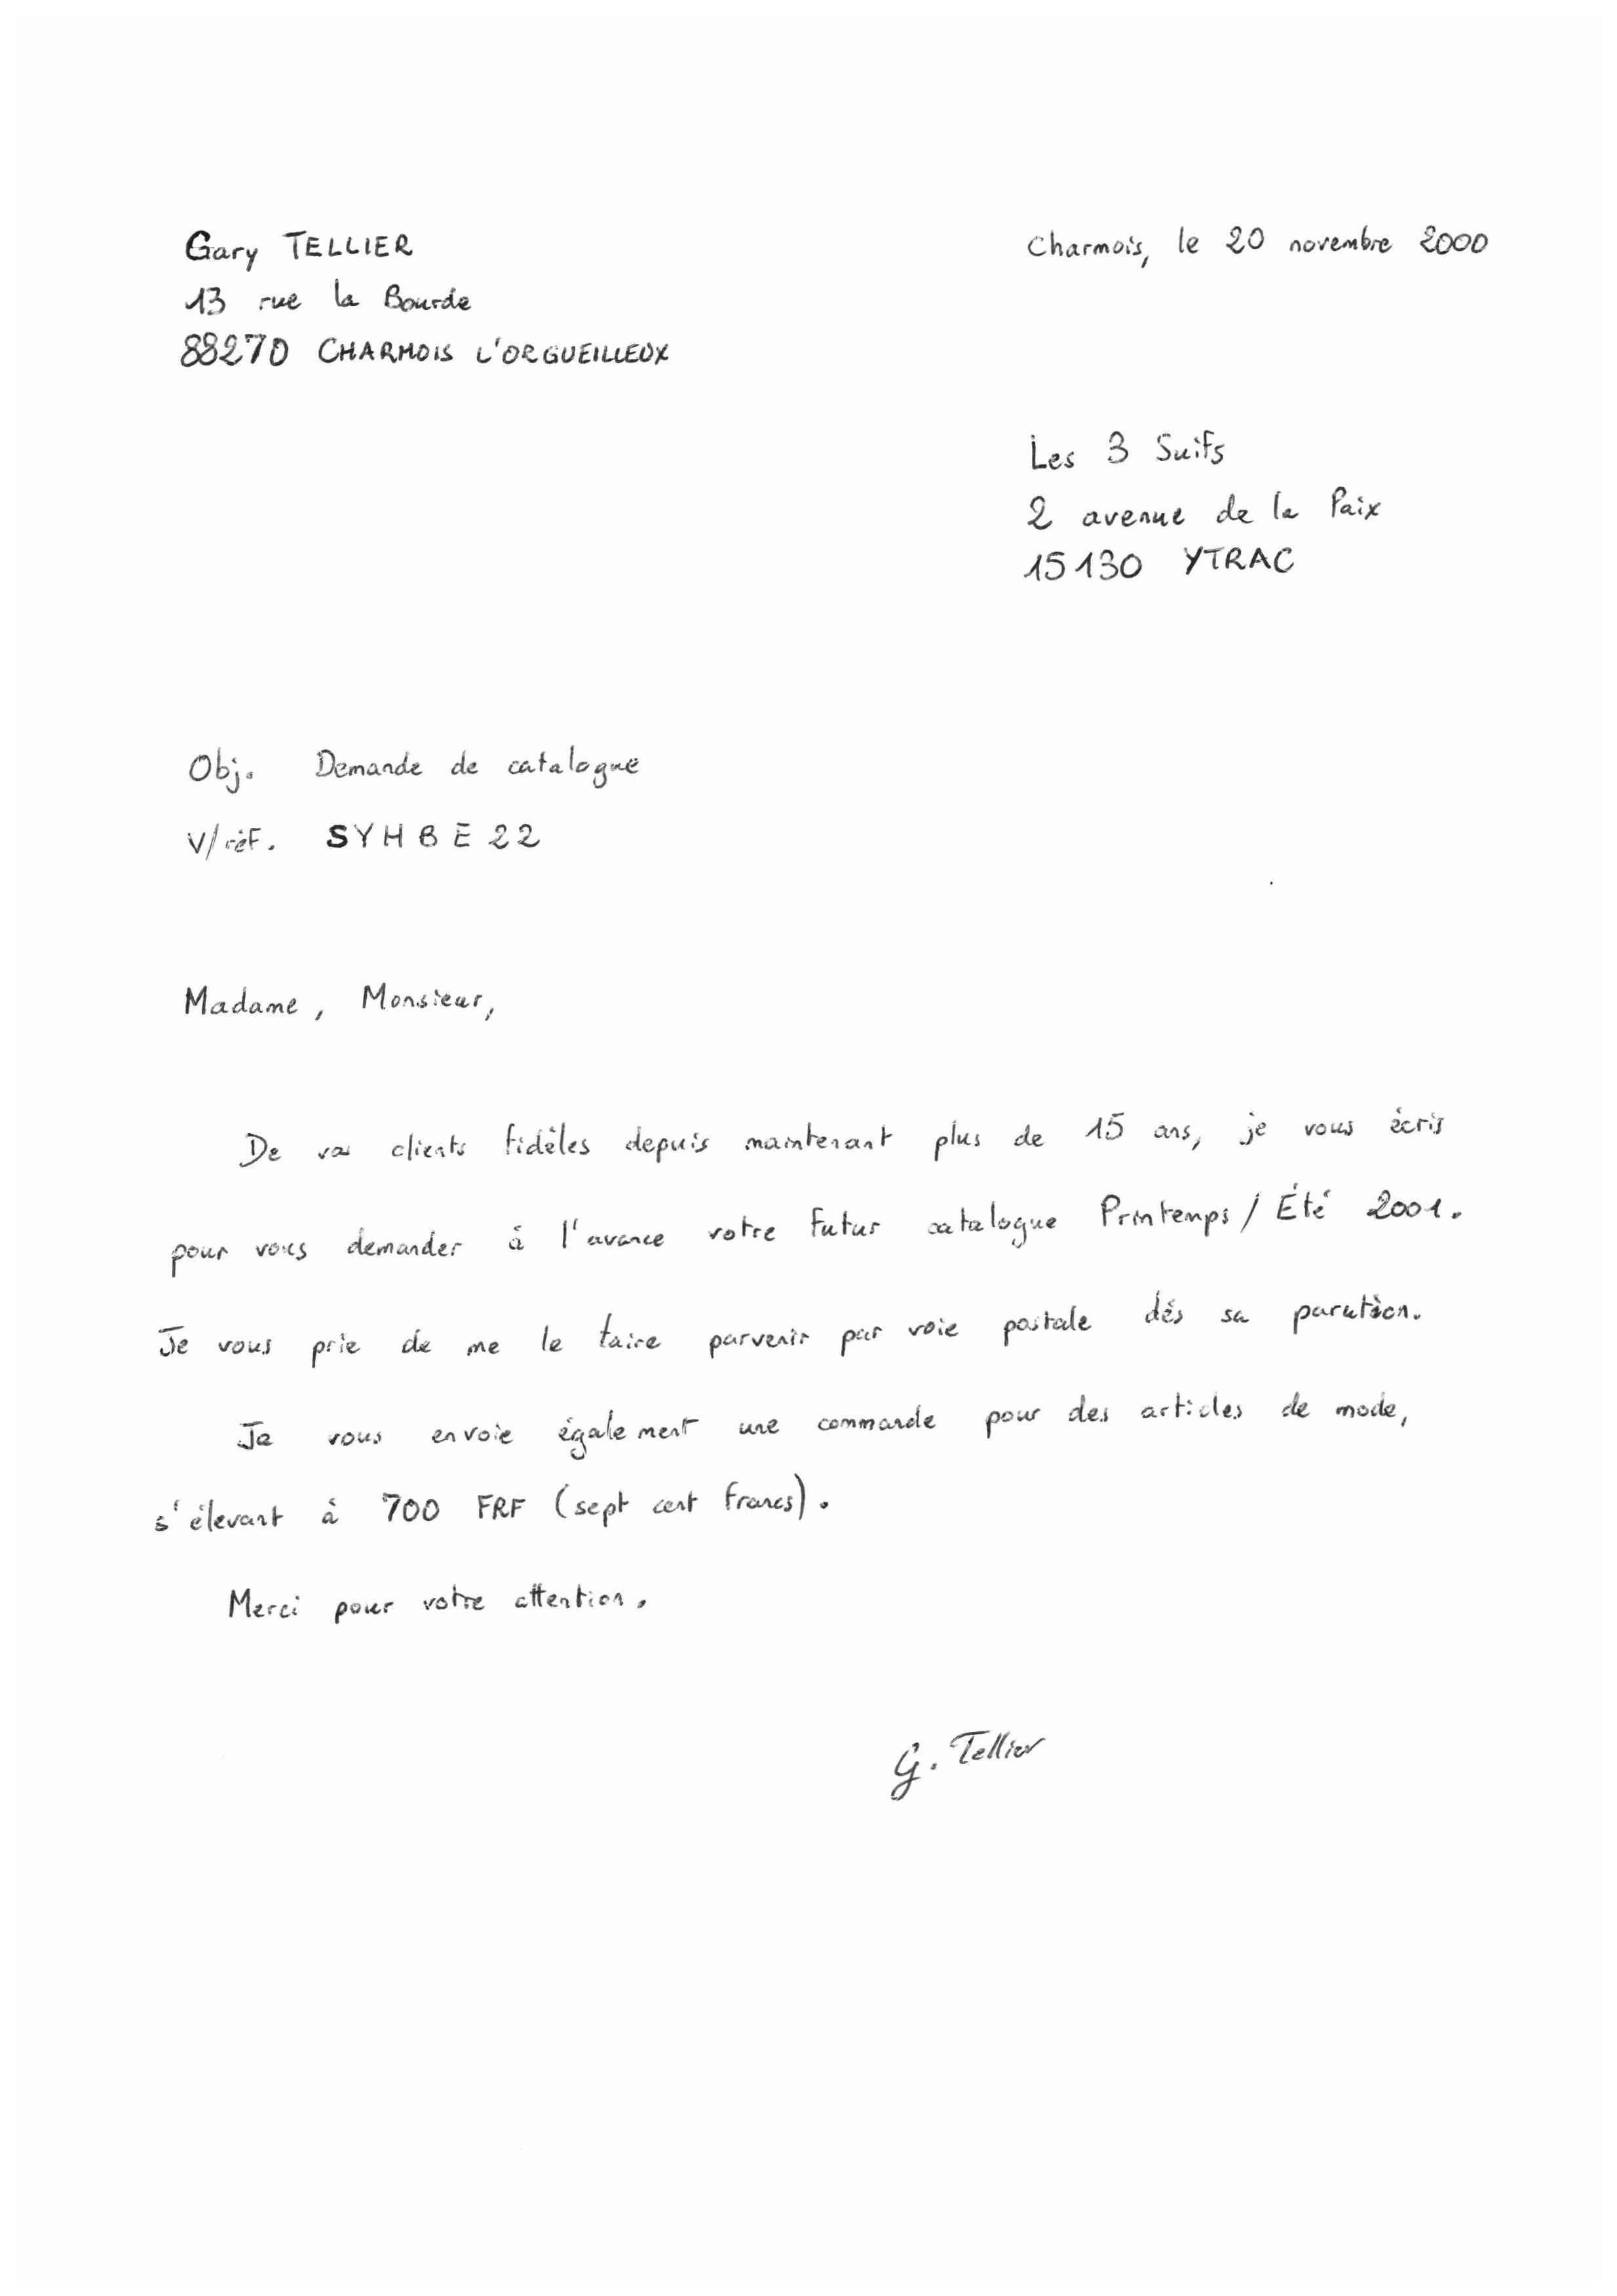 Gary TELLIER
13 rue la Bourde
88270 CHARMOIS L'ORGUEILLEUX
Charmois, le 20 novembre 2000
Les 3 Suifs
2 avenue de la Paix
15130 YTRAC
Obj. Demande de catalogue
V/réf. SYHBE22
Madame, Monsieur,
De vos clients fidèles depuis maintenant plus de 15 ans, je vous écris
pour vous demander à l'avance votre futur catalogue Printemps/Été 2001.
Je vous prie de me le faire parvenir par voie postale dés sa parution.
Je vous envoie également une commande pour des articles de mode,
s'élevant à 700 FRF (sept cent francs).
Merci pour votre attention.
G. Tellier